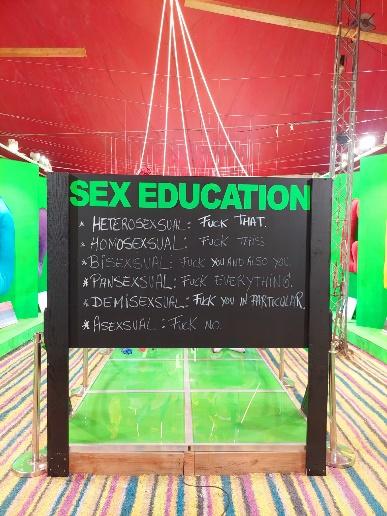 SEX EDUCATION
* HETEROSEXSUAL: FUCK THAT.
* HOMOSEXSUAL: FUCK THIS
* BISEXSUAL: FUCK YOU AND ALSO YOU.
* PANSEXSUAL: FUCK EVERYTHING.
* DEMISEXSUAL: FUCK YOU IN PARTICULAR.
* ASEXSUAL: FUCK NO.